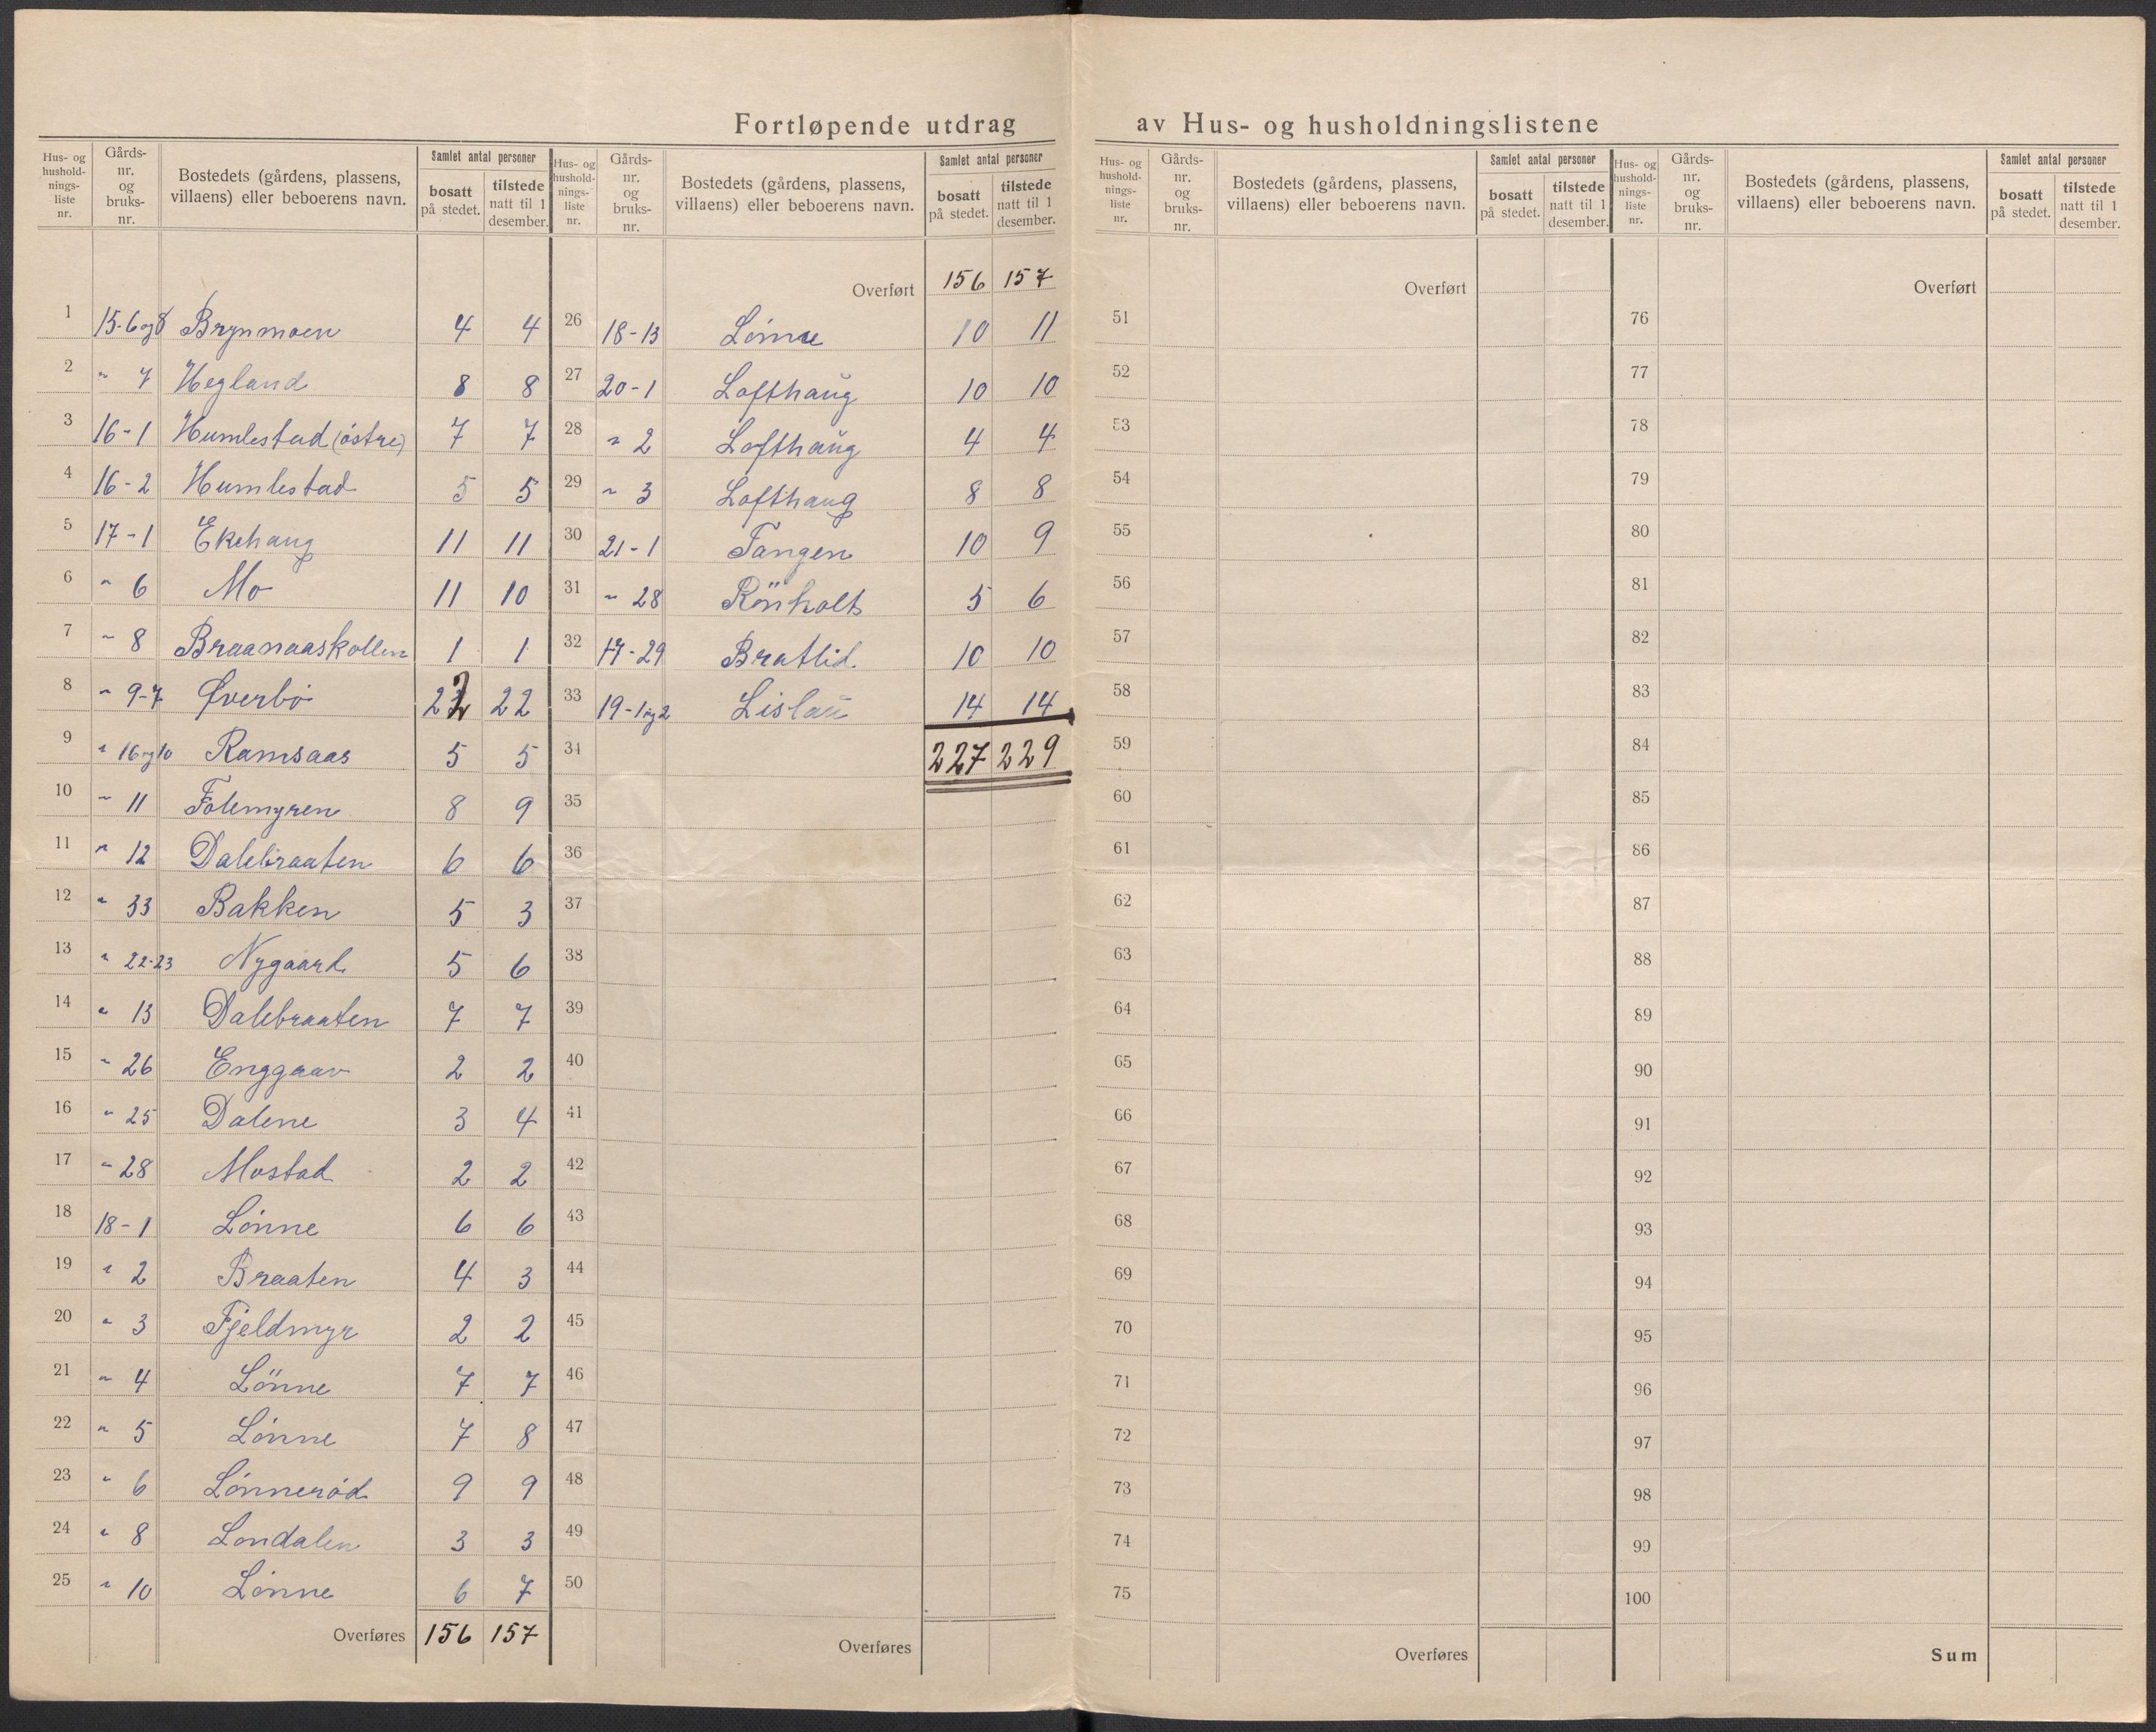 Fortløpende utdrag av Hus- og husholdningslistene
Hus- og hushold-nings-liste nr. | Gårds-nr. og bruks-nr. | Bostedets (gårdens, plassens, villaens) eller beboerens navn. | Samlet antal personer | bosatt på stedet. | tilstede natt til 1 desember.
1 15-6og8 Brynmoen 4 4
2 " 7 Hegland 8 8
3 16-1 Humlestad (østre) 7 7
4 16-2 Humlestad 5 5
5 17-1 Ekehaug 11 11
6 " 6 Mo 11 10
7 " 8 Braanaaskollen 1 1
8 " 9-7 Øverbö 22 22
9 " 16og10 Ramsaas 5 5
10 " 11 Folemyren 8 9
11 " 12 Dalebraaten 6 6
12 " 33 Bakken 5 3
13 " 22-23 Nygaard 5 6
14 " 13 Dalebraaten 7 7
15 " 26 Enggaav 2 2
16 " 25 Dalene 3 4
17 " 28 Mostad 2 2
18 18-1 Lönne 6 6
19 " 2 Braaten 4 3
20 " 3 Fjeldmyr 2 2
21 " 4 Lönne 7 7
22 " 5 Lönne 7 8
23 " 6 Lönneröd 9 9
24 " 8 Londalen 3 3
25 " 10 Lönne 6 7
Overføres 156 157
Hus- og hushold-nings-liste nr. | Gårds-nr. og bruks-nr. | Bostedets (gårdens, plassens, villaens) eller beboerens navn. | Samlet antal personer | bosatt på stedet. | tilstede natt til 1 desember.
Overført 156 157
26 18-13 Lönne 10 11
27 20-1 Lofthaug 10 10
28 " 2 Lofthaug 4 4
29 " 3 Lofthaug 8 8
30 21-1 Tangen 10 9
31 " 28 Rönholt 5 6
32 17-29 Bratlid 10 10
33 19-1og2 Lislau 14 14
34 227 229
35
36
37
38
39
40
41
42
43
44
45
46
47
48
49
50
Overføres
Hus- og hushold-nings-liste nr. | Gårds-nr. og bruks-nr. | Bostedets (gårdens, plassens, villaens) eller beboerens navn. | Samlet antal personer | bosatt på stedet. | tilstede natt til 1 desember.
Overført
51
52
53
54
55
56
57
58
59
60
61
62
63
64
65
66
67
68
69
70
71
72
73
74
75
Overføres
Hus- og hushold-nings-liste nr. | Gårds-nr. og bruks-nr. | Bostedets (gårdens, plassens, villaens) eller beboerens navn. | Samlet antal personer | bosatt på stedet. | tilstede natt til 1 desember.
Overført
76
77
78
79
80
81
82
83
84
85
86
87
88
89
90
91
92
93
94
95
96
97
98
99
100
Sum